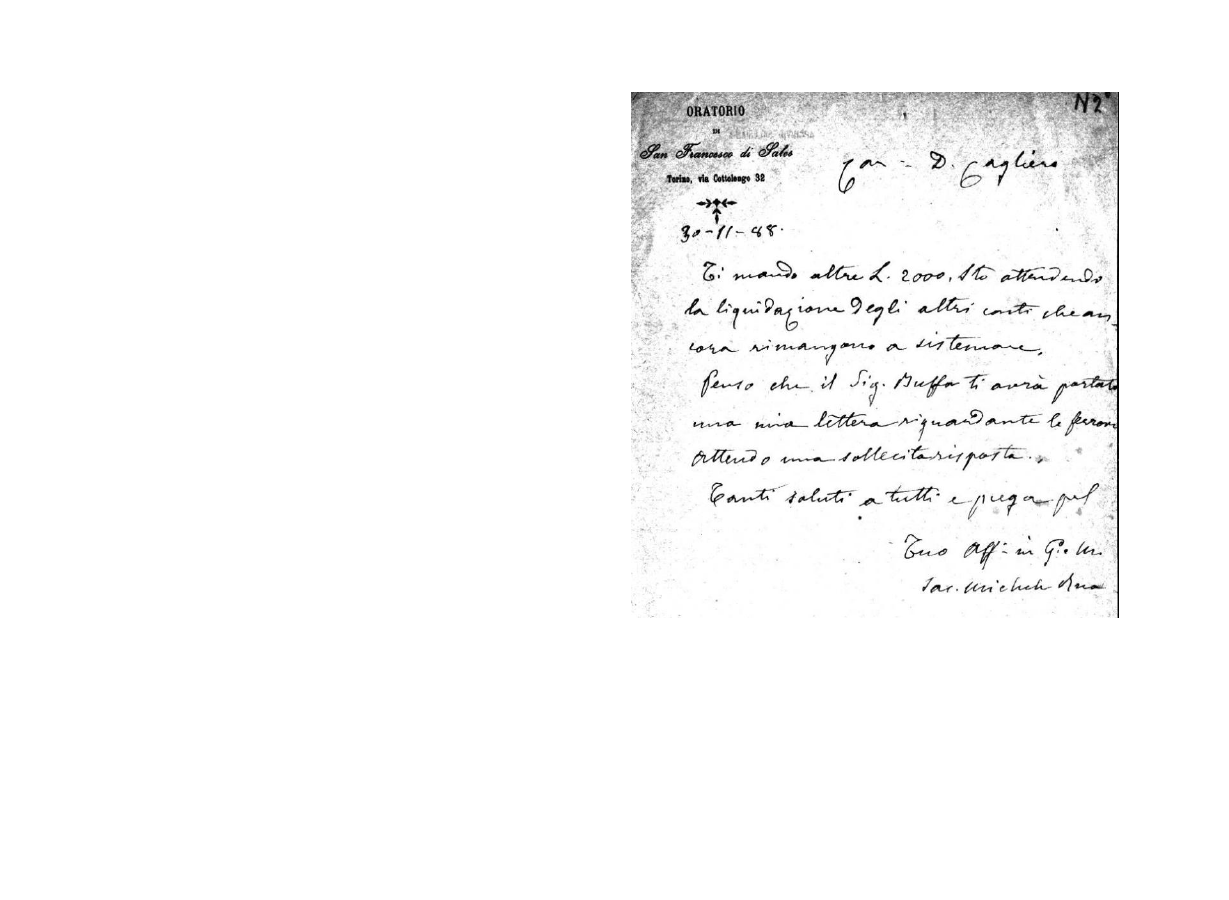 N 2°
ORATORIO
DI
San Francesco di Sales
Torino, via Cottolengo 32
30-11-88.
Car.mo D. Cagliero
Ti mando altre L. 2000. Sto attendendo
la liquidazione degli altri conti che an-
cora rimangono a sistemare.
Penso che il Sig. Buffa ti avrà portato
una mia lettera riguardante le
Attendo una sollecita risposta.
Tanti saluti a tutti e prega pel
Tuo Aff.mo in G. e M.
Sac. Michele Rua